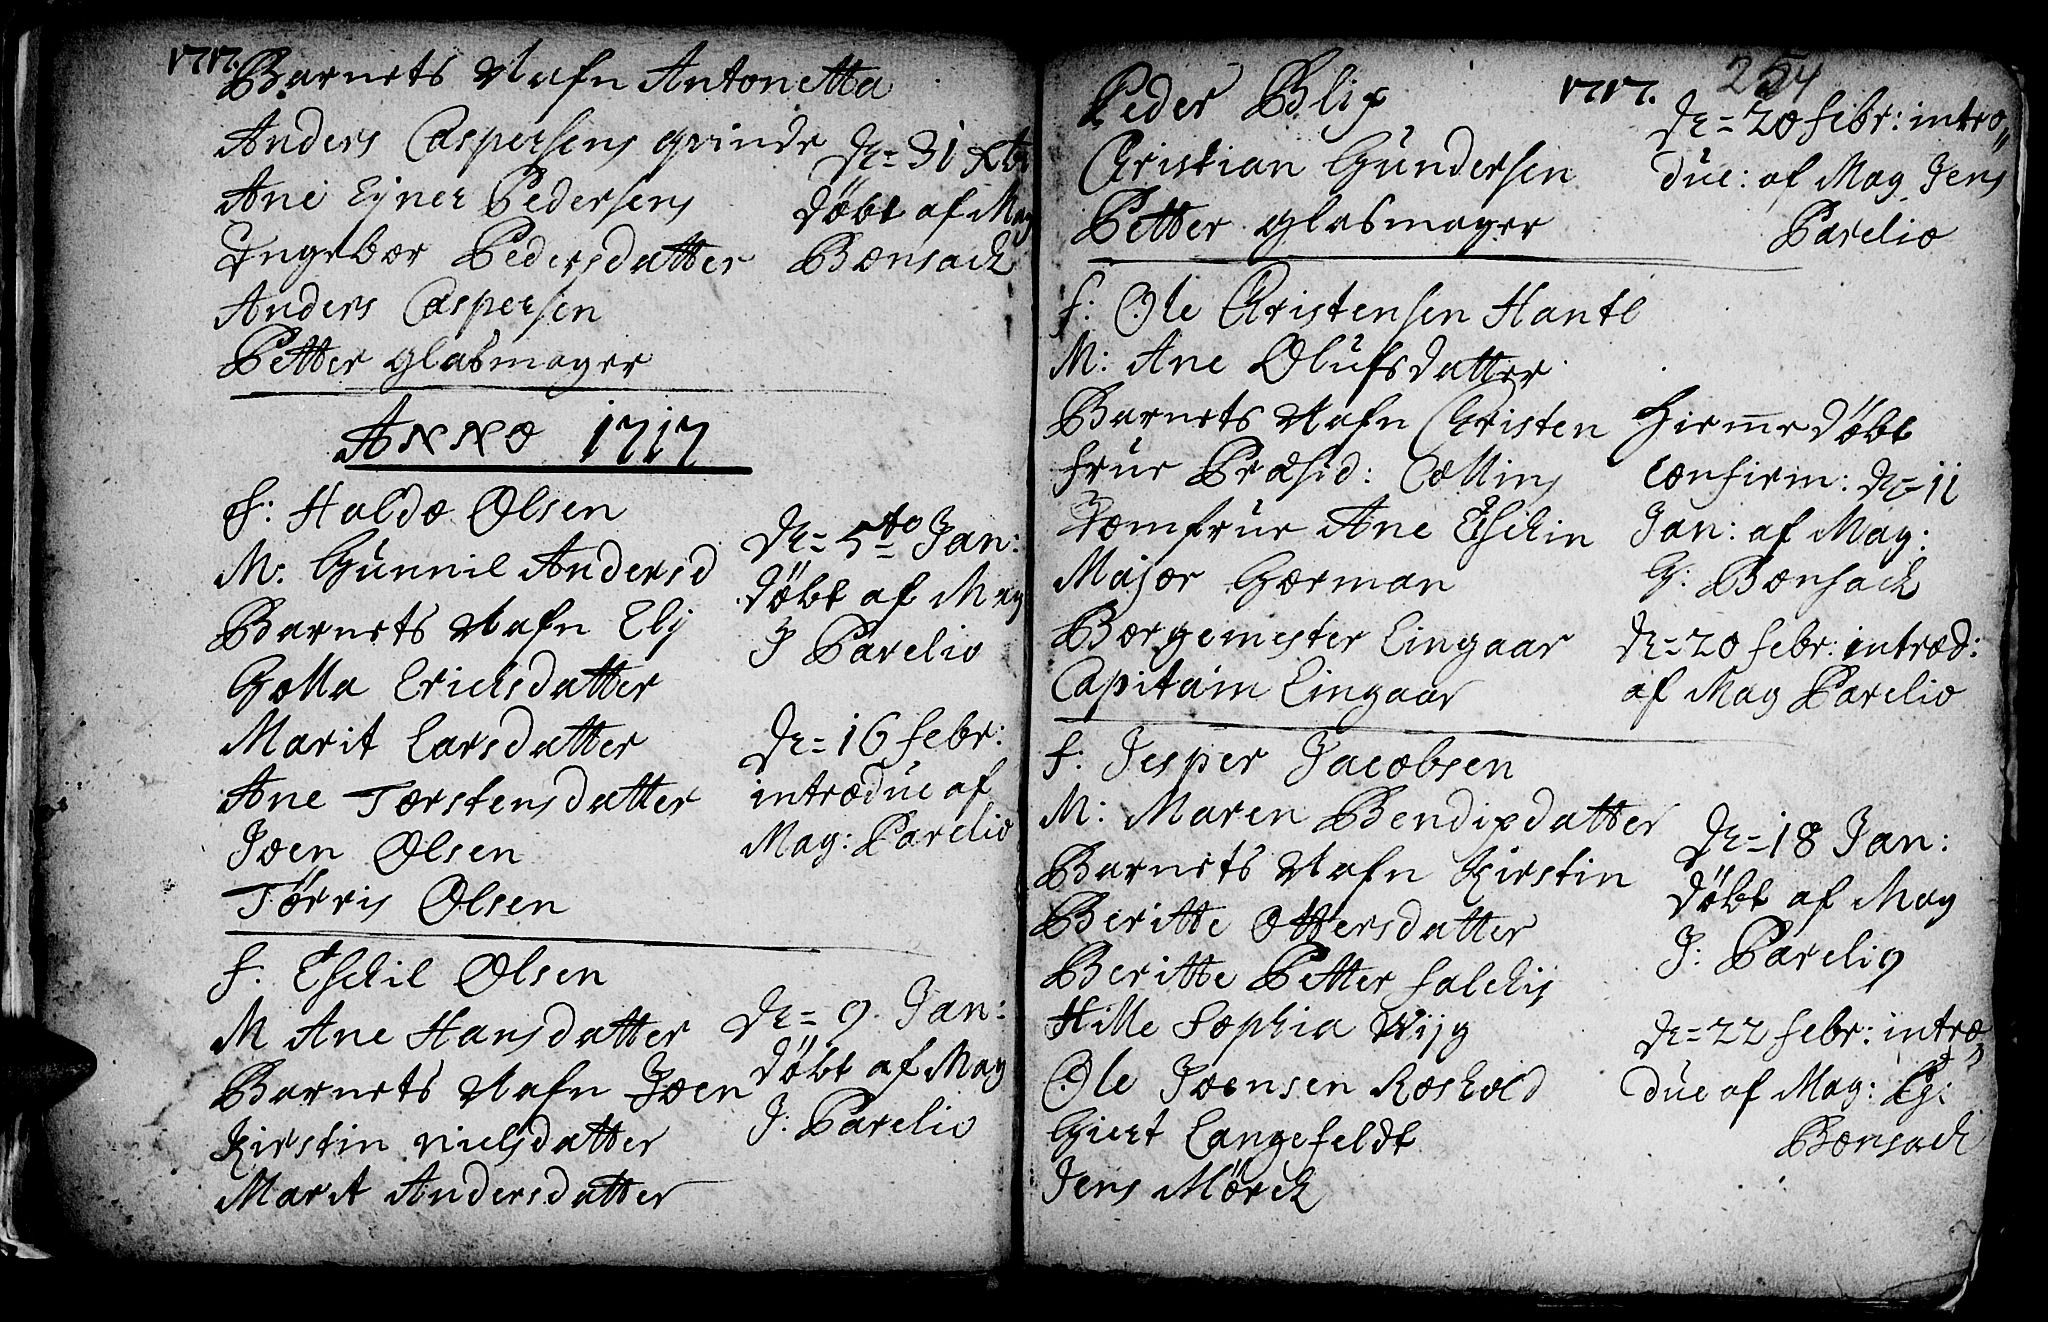 1717.
Barnets Nafn Antonetta
Anders Caspersens qvinde
Ane Ejner Pedersens
Ingebor Pedersdatter
Anders Caspersen
Petter glasmager
De= 31 xbr
döbt af Mag
Bonsack
Anno 1717
f: Haldo Olsen
M: Gunnil Andersd
Barnets Nafn Elj
Golla Ericksdatter
Marit Larsdatter
Ane Torstensdatter
Joen Olsen
Törris Olsen
De= 5to Jan:
döbt af Mag
J Parelio
De= 16 febr:
introduc af
Mag: Parelio
f. Eschil Olsen
M Ane Hansdatter
Barnets Nafn Joen
Kirstin nielsdatter
Marit Andersdatter
De= 9. Jan:
döbt af Mag
J: Parelio
1717.
254
Peder Blix
Christian Gundersen
Petter glasmager
De= 20 febr: intro„
duc: af Mag Jens
Parelio
f: Ole Christensen Hantl
M: Ane Olufsdatter
Barnets Nafn Christen
frue Præsid: Collins
Jomfrue Ane Eschin
Major Gorman
Borgemester Lingaar
Capitain Lingaar
Hiemedöbt
confirm: De= 11
Jan: af Mag:
G: Bonsack
De= 20 febr: introd:
af Mag Parelio
f: Jesper Jacobsen
M: Maren Bendixdatter
Barnets Nafn Kirstin
Beritte Ottersdatter
Beritte Petter falchis
Hille Sophia Wijg
Ole Joensen Roskold
Giert Langefeldt
Jens Mörck
De= 18 Jan:
döbt af Mag
J: Parelio
De= 22 febr: intro„
duc af Mag: G:
Bonsack